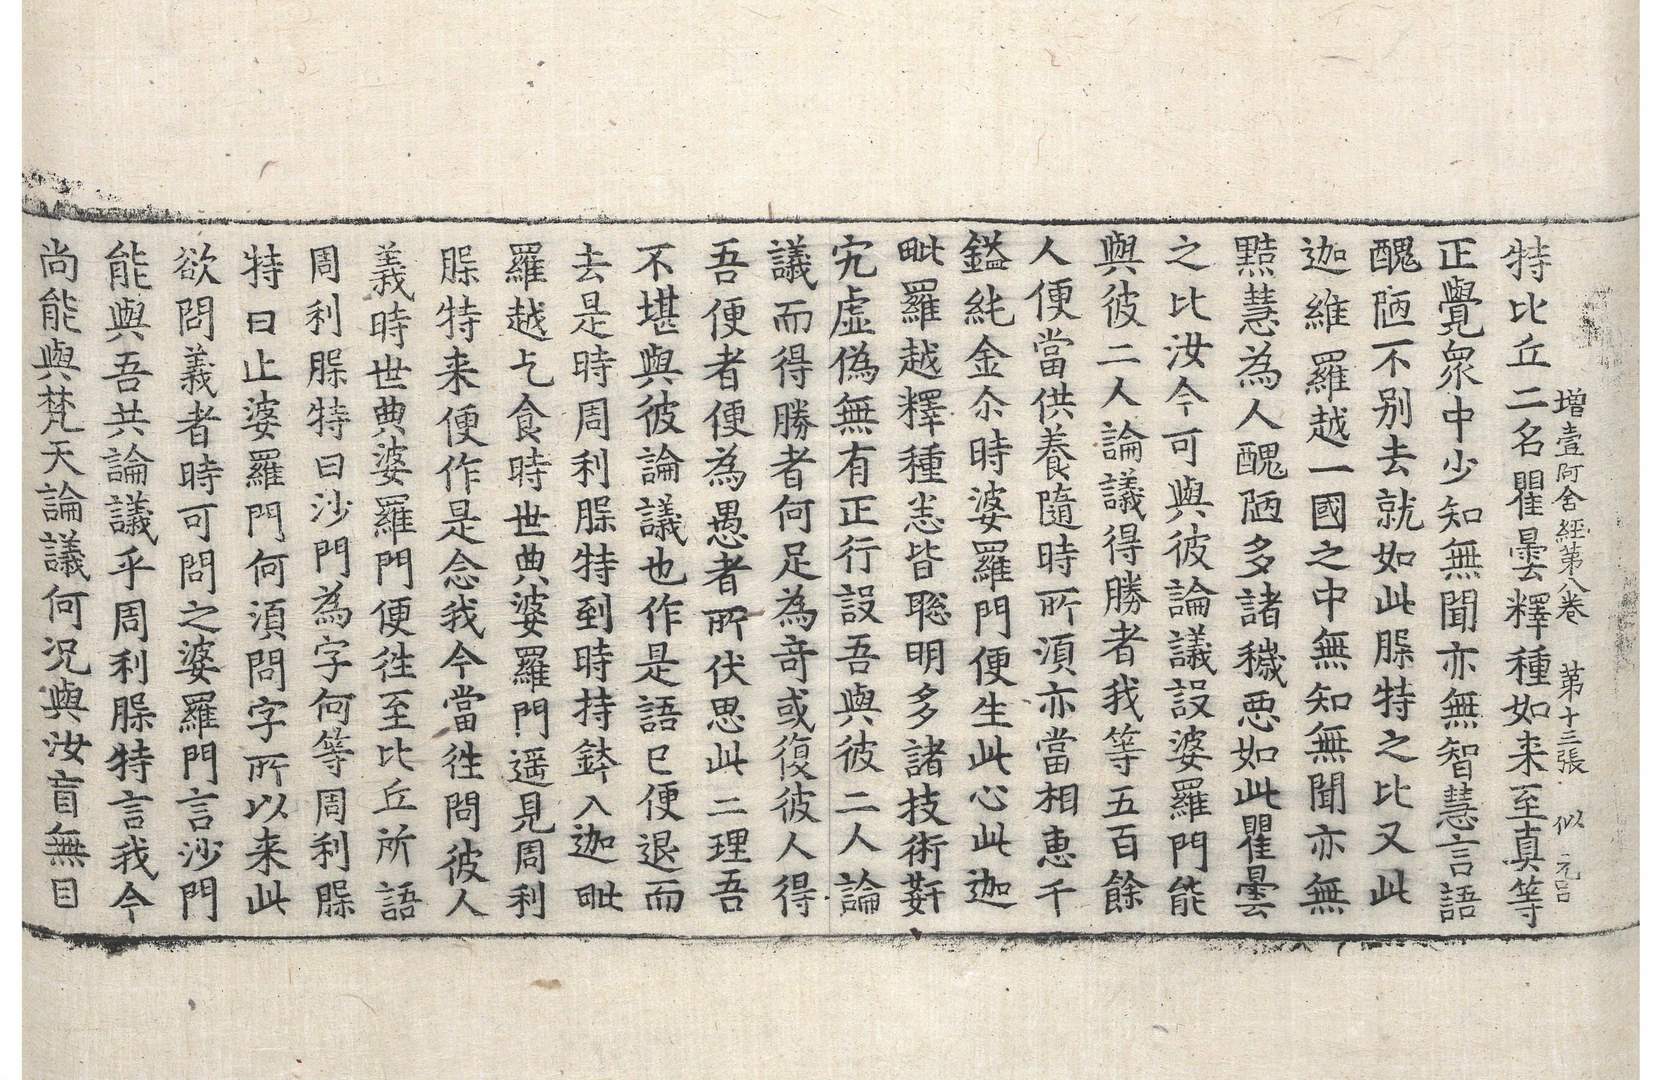 增壹阿含經第八卷 第十三張 似 元吕
特比丘二名瞿曇釋種如来至真等
正覺衆中少知無聞亦無智慧言語
醜陋不别去就如此𦙶特之比又此
迦維羅越一國之中無知無聞亦無
黠慧為人醜陋多諸穢悪如此瞿曇
之比汝今可與彼論議設婆羅門能
與彼二人論議得勝者我等五百餘
人便當供養隨時所湏亦當相惠千
鎰純金尒時婆羅門便生此心此迦
毗羅越釋種悉皆聡明多諸技術姧
宄虛偽無有正行設吾與彼二人論
議而得勝者何足為竒或復彼人得
吾便者便為愚者所伏思此二理吾
不堪與彼論議也作是語已便退而
去是時周利𦙶特到時持鉢入迦毗
羅越乞食時世典婆羅門遥見周利
𦙶特来便作是念我今當徃問彼人
義時世典婆羅門便徃至比丘所語
周利𦙶特曰沙門為字何等周利𦙶
特曰止婆羅門何湏問字所以来此
欲問義者時可問之婆羅門言沙門
能與吾共論議乎周利𦙶特言我今
尚能與梵天論議何况與汝盲無目